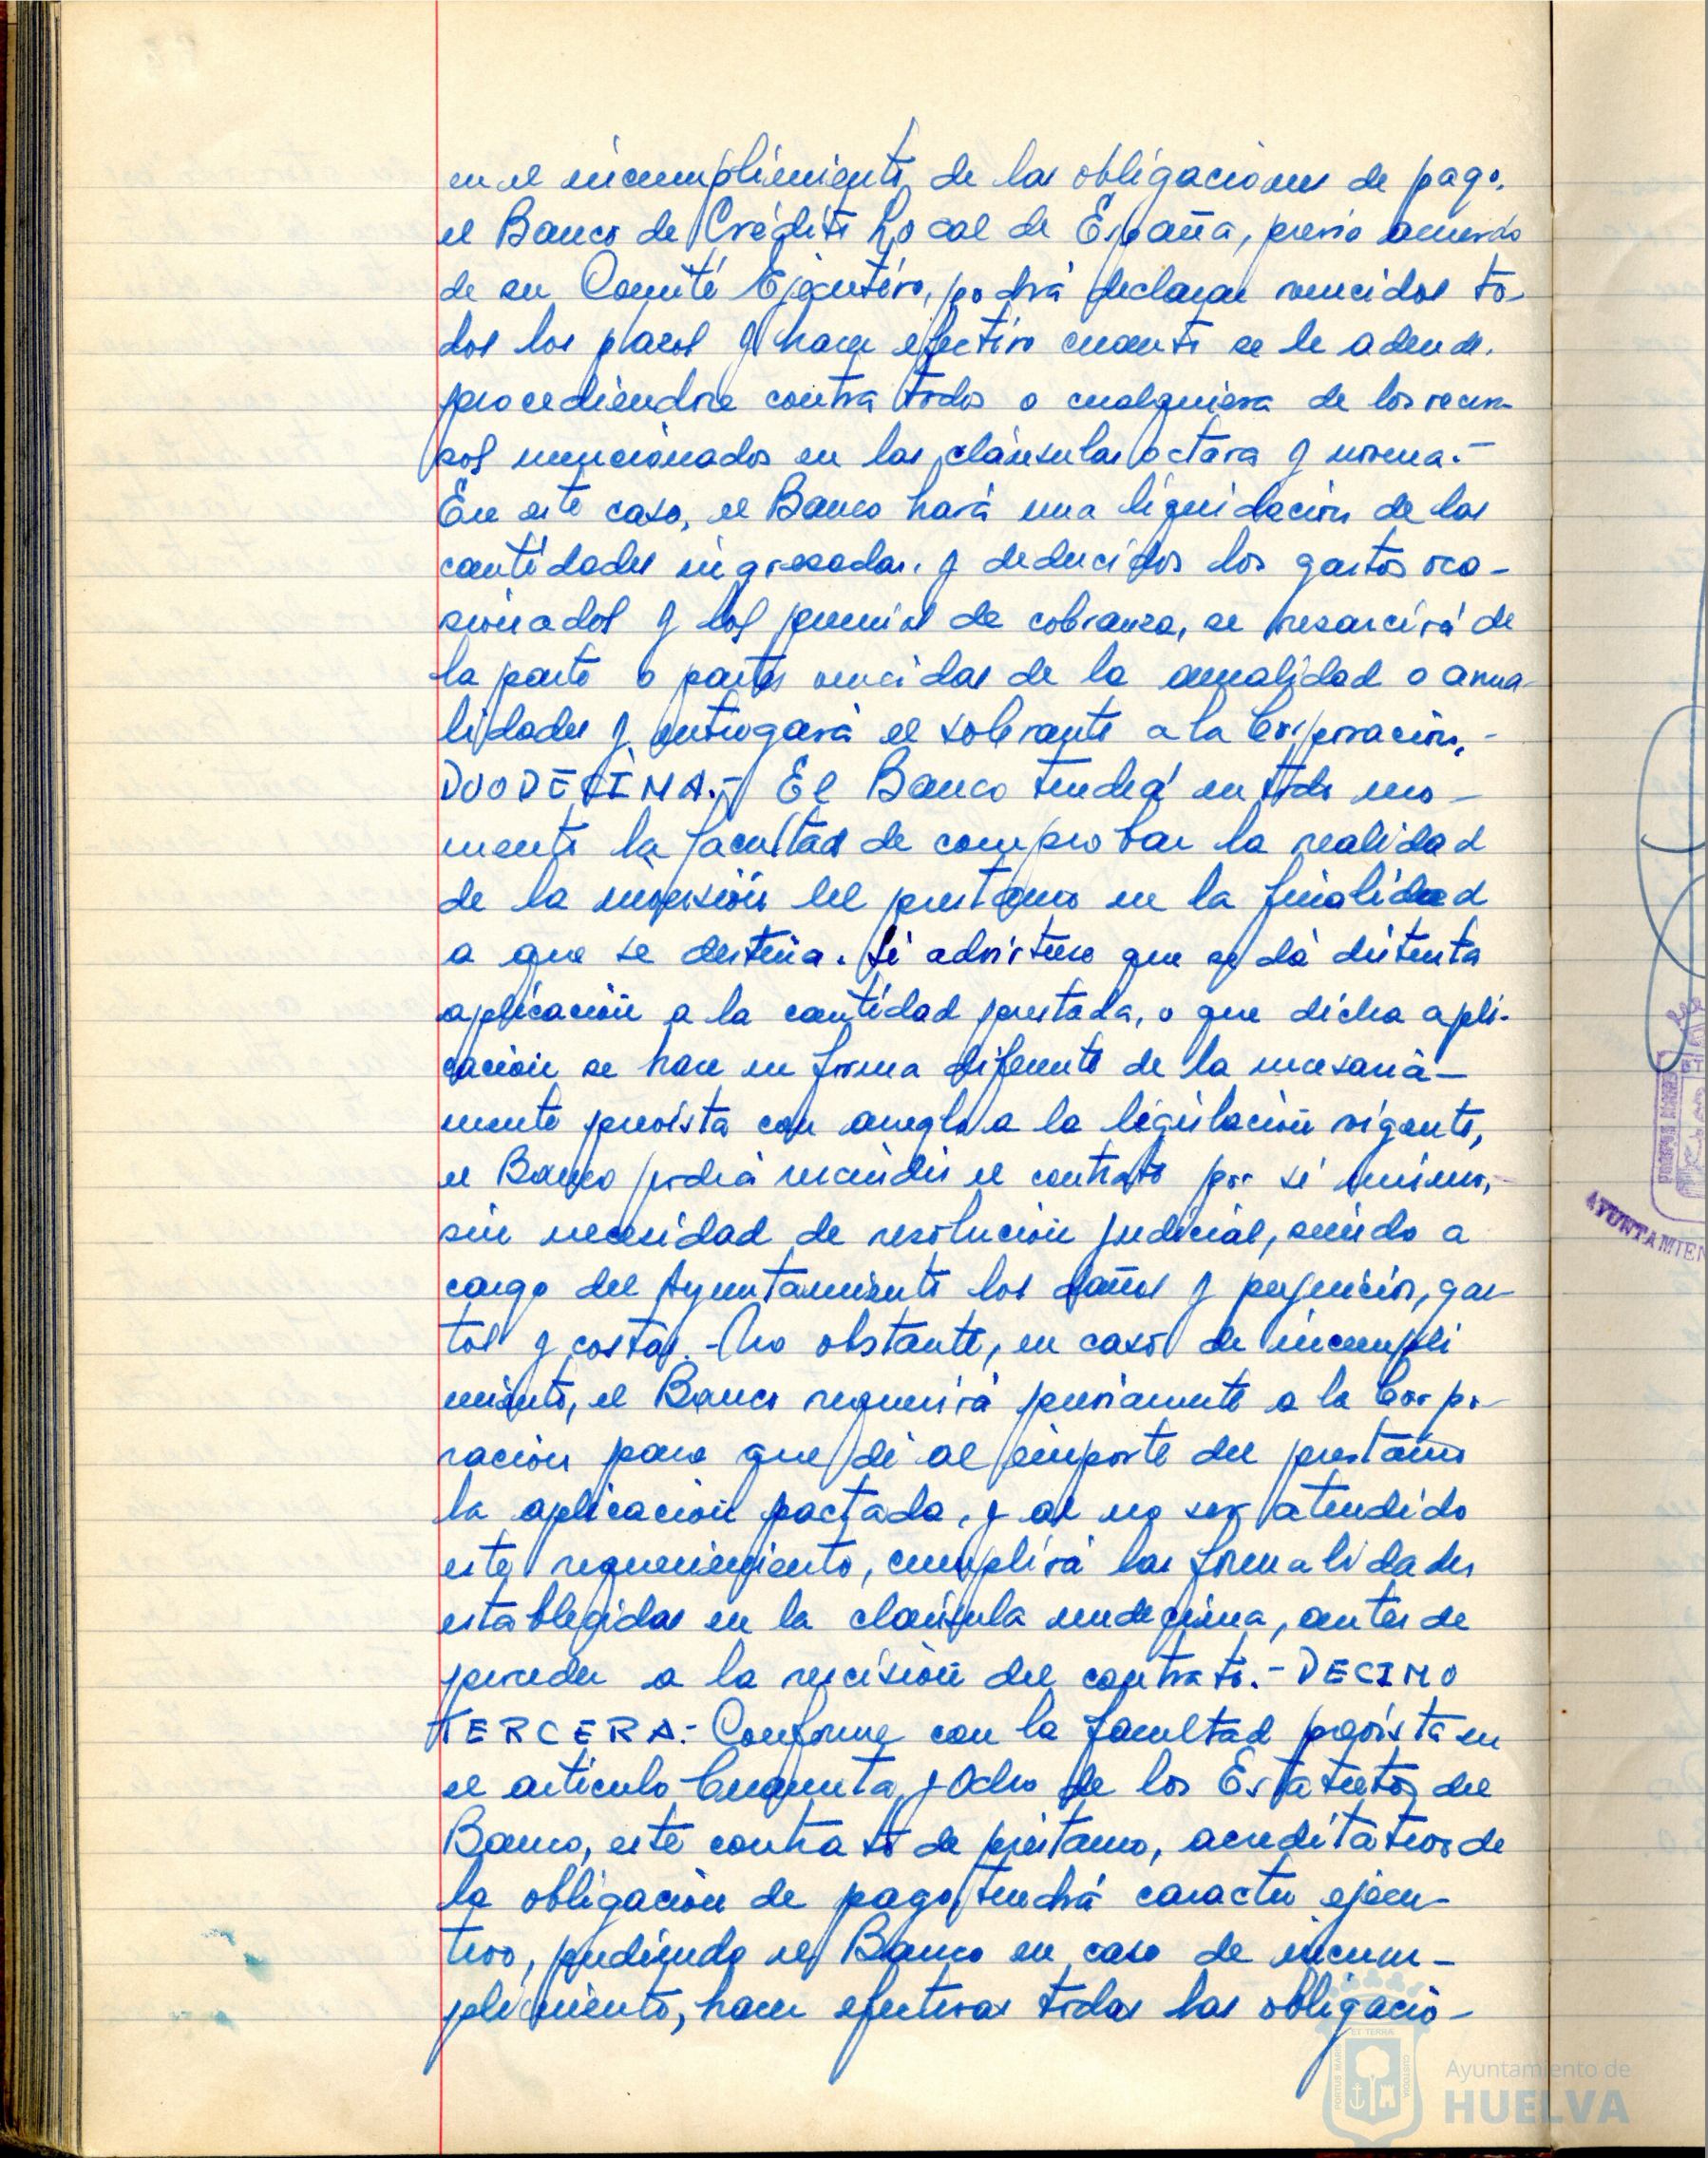 en el incumplimiento de las obligaciones de pago,
el Banco de Crédito Local de España, previo acuerdo
de su Comité Ejecutivo, podrá declarar vencidos to-
dos los plazos y hacer efectivo cuanto se le adeude,
procediendose contra todos o cualquiera de los recur-
sos mencionados en las cláusulas octava y novena.-
En este caso, el Banco hará una liquidación de las
cantidades ingresadas, y deducidos los gastos oca-
sionados y los premios de cobranza, se resarcirá de
la parte o partes vencidas de la anualidad o anua-
lidades y entregará el sobrante a la Corporación.-
DUODECIMA.- El Banco tendrá en todo mo-
mento la facultad de comprobar la realidad
de la inversión del prestamo en la finalidad
a que se destina. Si advirtiese que se dá distinta
aplicación a la cantidad prestada, o que dicha apli-
cación se hace en forma diferente de la necesaria-
mente prevista con arreglo a la legislación vigente,
el Banco podrá rescindir el contrato por sí mismo,
sin necesidad de resolución judicial, siendo a
cargo del Ayuntamiento los daños y perjuicios, gas-
tos y costas.- No obstante, en caso de incumpli
miento, el Banco requerirá previamente a la Corpo-
ración para que dé al importe del prestamo
la aplicación pactada, y al no ser atendido
este requerimiento, cumplirá las formalidades
establecidas en la claúsula undecima, antes de
proceder a la rescisión del contrato.- DECIMO
TERCERA.- Conforme con la facultad prevista en
el artículo Cincuenta y Ocho de los Estatutos del
Banco, este contrato de préstamo, acreditativo de
la obligación de pago, tendrá caracter ejecu-
tivo, pudiendo el Banco en caso de incum-
plimiento, hacer efectivas todas las obligacio-
AYUNTAMIEN
Ayuntamiento de
HUELVA